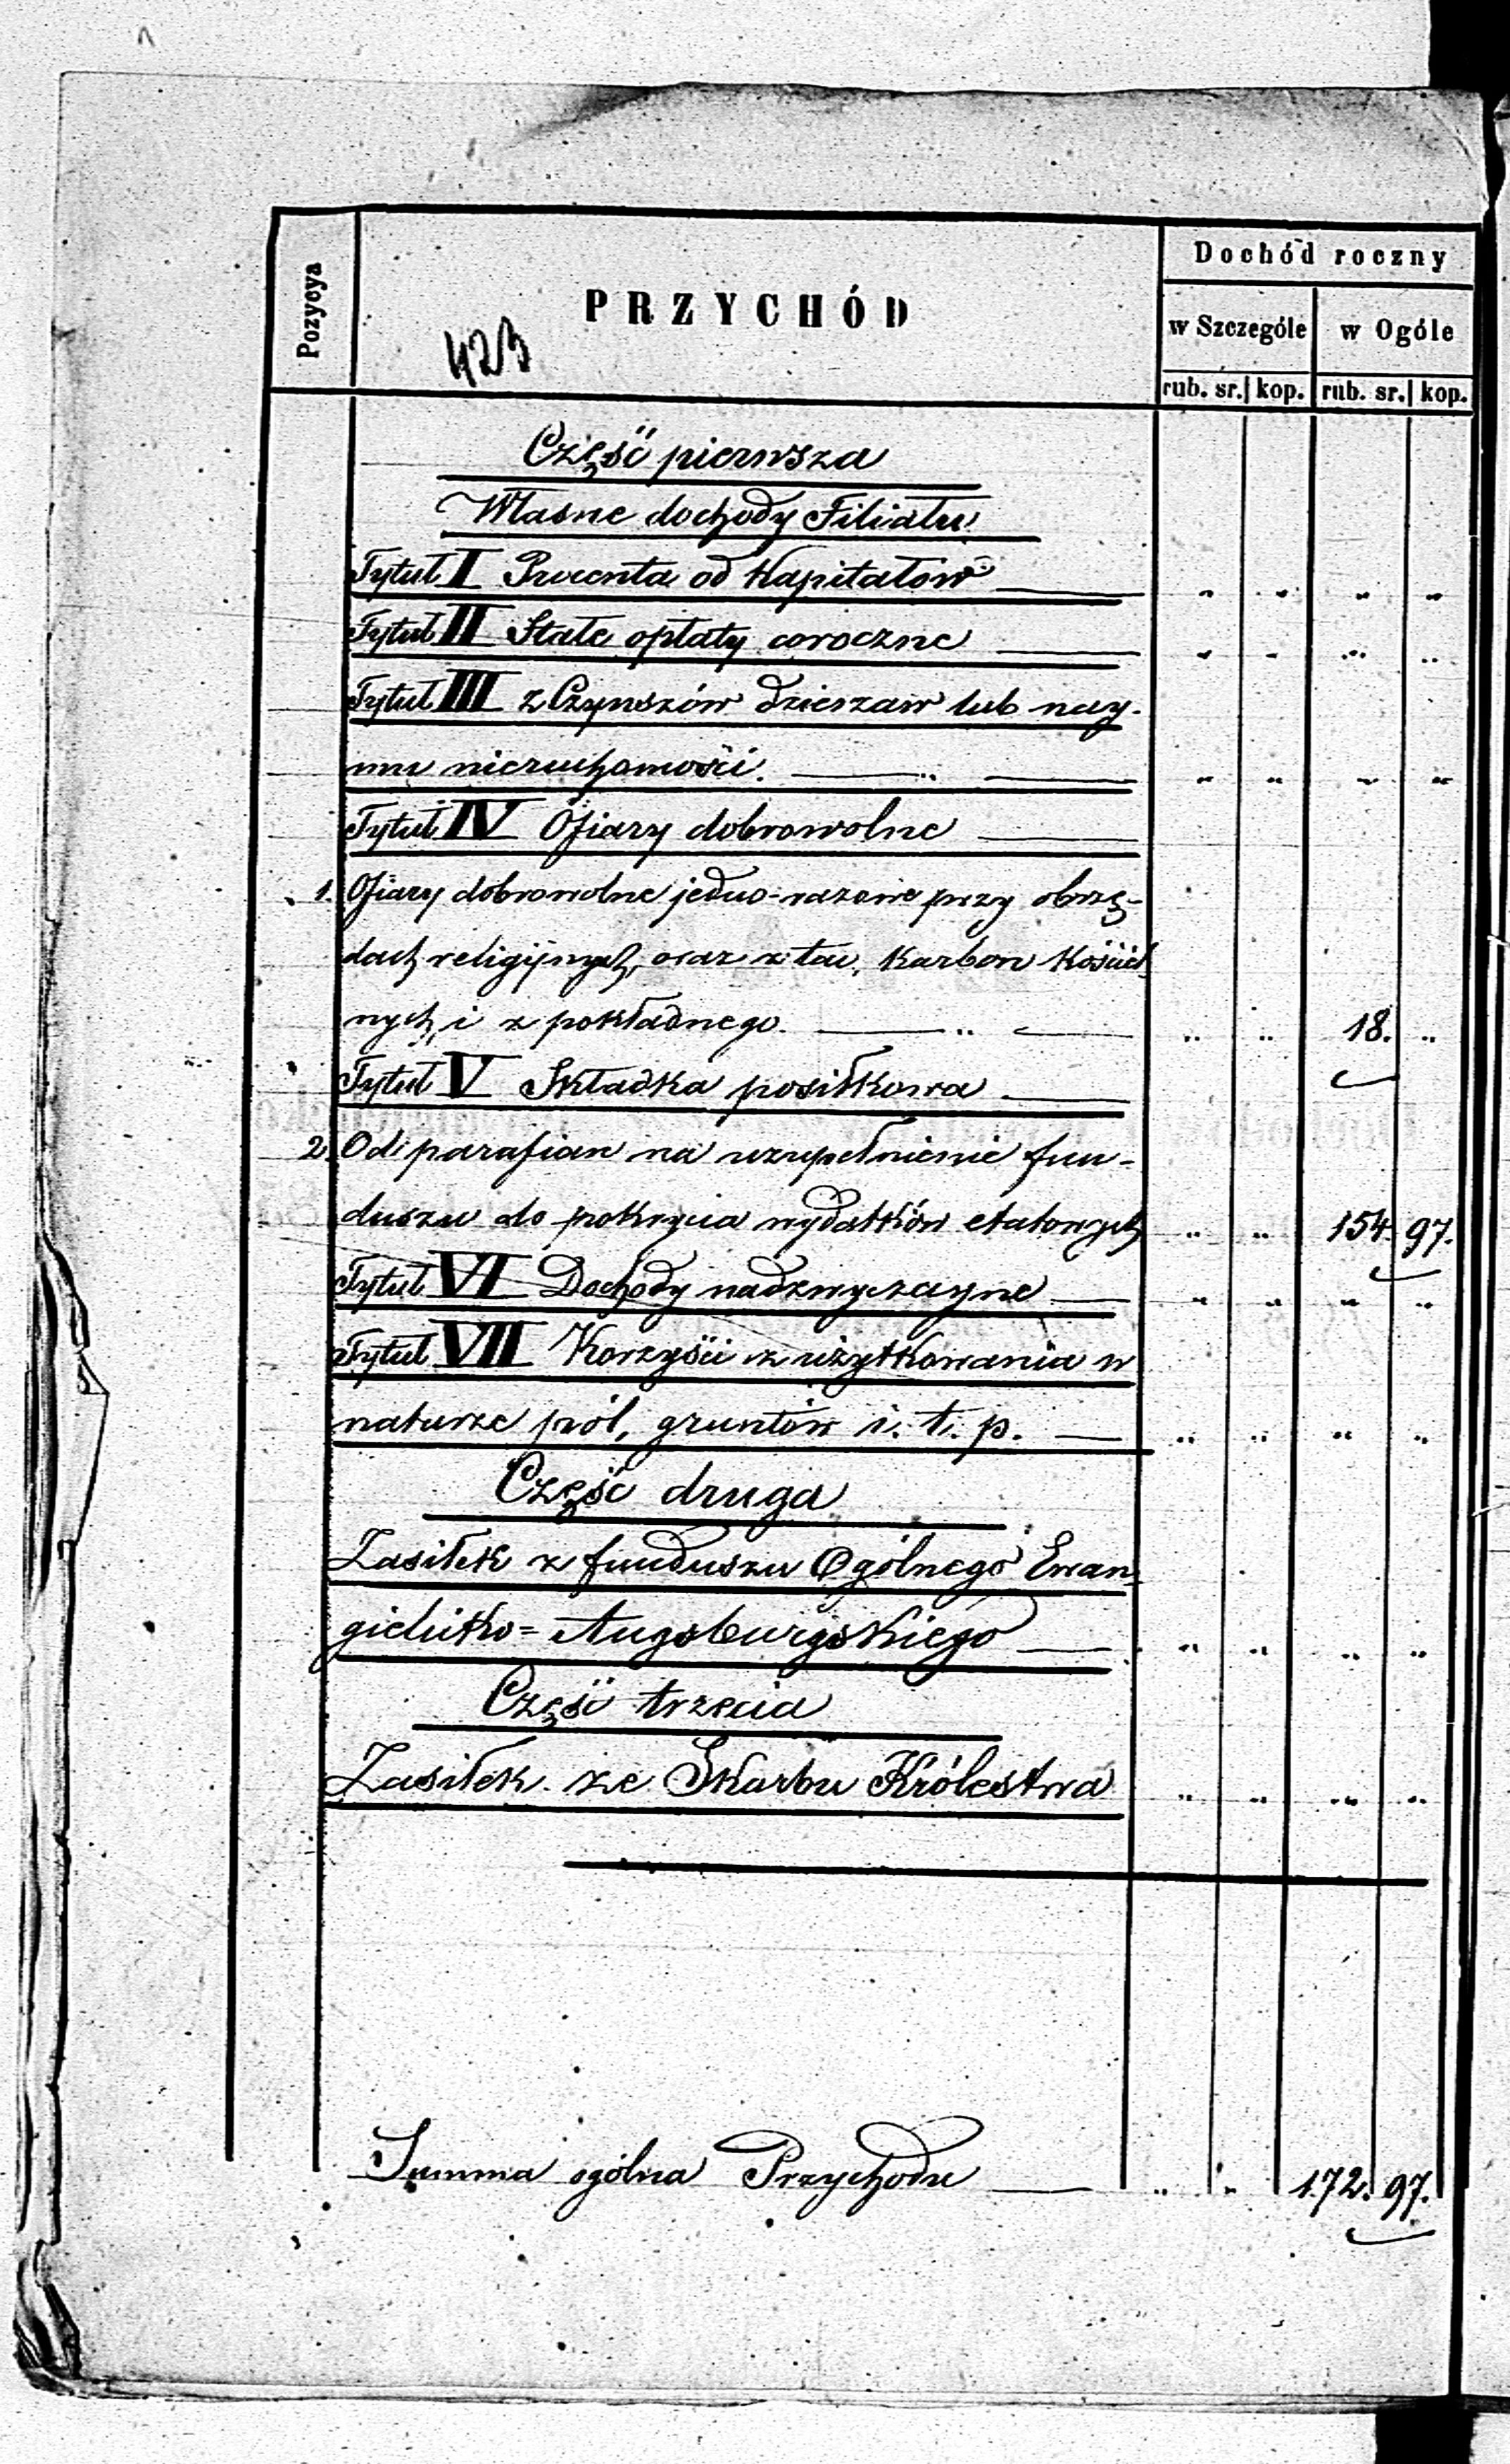 Dochód roczny
Pozycya
PRZYCHÓD
w Szczególe w Ogóle
423
rub. sr. kop. rub. sr. kop.
Część pierwsza
Własne dochody Filiału
Tytuł I Procenta od Kapitałów " " " "
Tytuł II Stałe opłaty coroczne " " " "
Tytuł III z Czynszów dzierzaw lub nay-
mu nieruchomości. " " " "
Tytuł IV Ofiary dobrowolne
1. Ofiary dobrowolne jedno-razowe przy obrzę-
dach religijnych, oraz z tac, Karbon Kościel
nych i z pokładnego. " " 18. "
Tytuł V Składka posiłkowa
2. Od parafian na uzupełnienie fun-
duszu do pokrycia wydatków etatowych " " 154. 97.
Tytuł VI Dochody nadzwyczayne " " " "
Tytuł VII Korzyści z użytkowania w
naturze pól, gruntów i. t. p. " " " "
Część druga
Zasiłek z funduszu Ogólnego Ewan-
gielicko=Augsburgskiego " " " "
Część trzecia
Zasiłek ze Skarbu Królestwa " " " "
Summa ogólna Przychodu " " 172. 97.